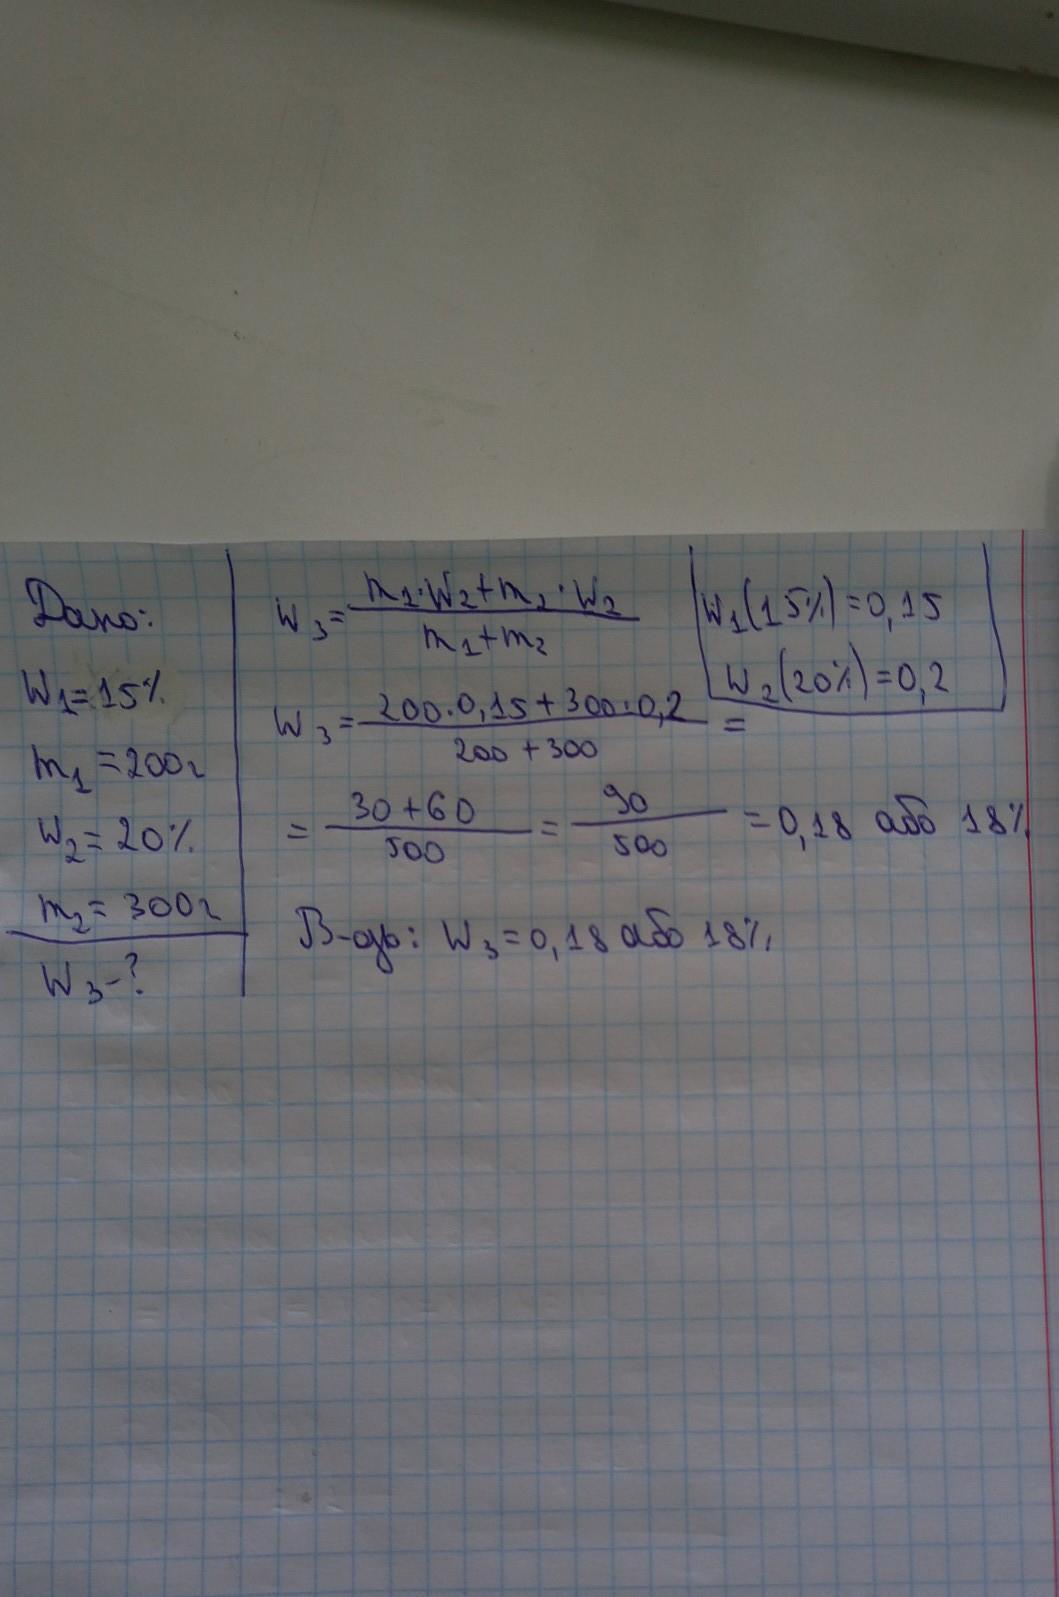 Дано:
W₁=15%
m₁=200г
W₂=20%
m₂=300г
W₃-?
W₃= (m₁·W₂+m₂·W₂)/(m₁+m₂)
W₁(15%)=0,15
W₂(20%)=0,2
W₃= (200·0,15+300·0,2)/(200+300) =
= (30+60)/500 = 90/500 =0,18 або 18%
В-дь: W₃=0,18 або 18%